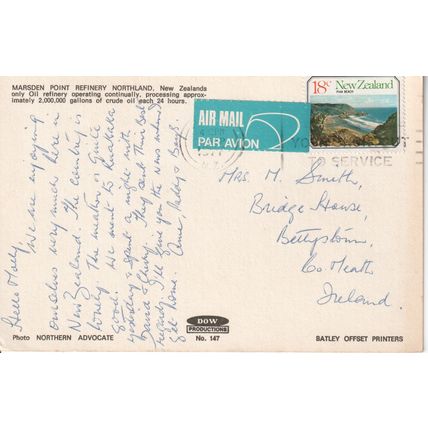 MARSDEN POINT REFINERY NORTHLAND, New Zealands
only Oil refinery operating continually, processing approx-
imately 2,000,000 gallons of crude oil each 24 hours.
18c New Zealand
PIHA BEACH
AIR MAIL
PAR AVION
1977
YO
TO SERVICE
Hello Molly,
We are enjoying
ourselves very much here in
New Zealand. The country is
lovely. The weather is quite
good. We went to
yesterday & spent a night with
David & They send their best
regards. I'll give you the news when I
get home. Love,
Mrs. M. Smith,
Bridge House,
Bettystown,
Co Meath,
Ireland.
DOW
PRODUCTIONS
Photo NORTHERN ADVOCATE
No. 147
BATLEY OFFSET PRINTERS